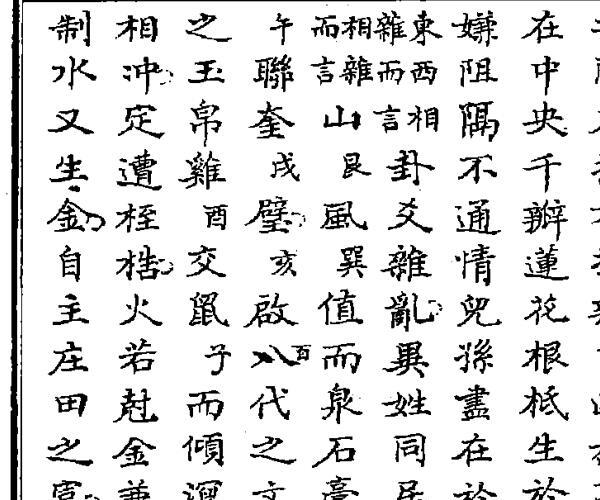 在中央千瓣蓮花根柢生於
嫌阻隔不通情兒孫盡在於
東西相雜而言卦爻雜亂異姓同居
相雜而言山艮風巽值而泉石膏
午聯奎戌壁亥啟八百代之文
之玉帛雞酉交鼠子而傾
相冲定遭桎梏火若尅金兼
制水又生金自主庄田之富